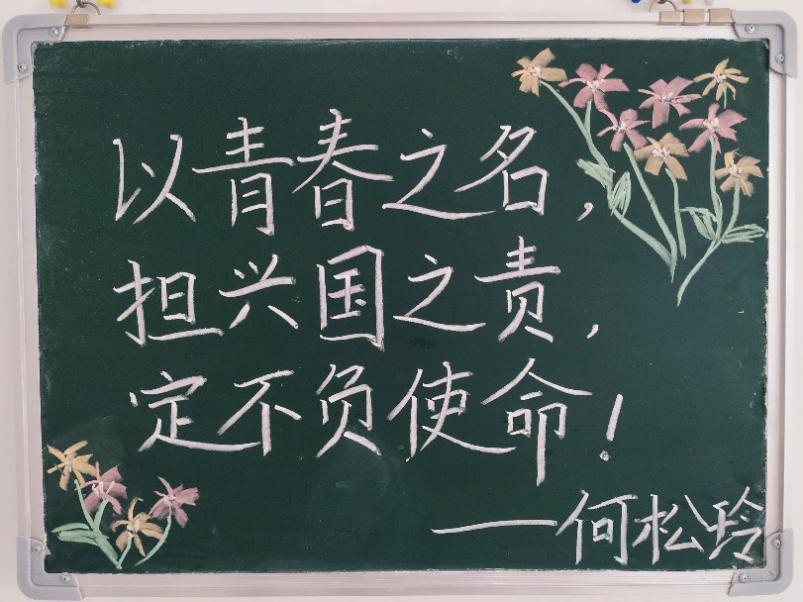 以青春之名，
担兴国之责，
定不负使命！
——何松玲